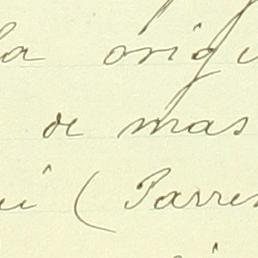 la orig
de mas
ui (Parres